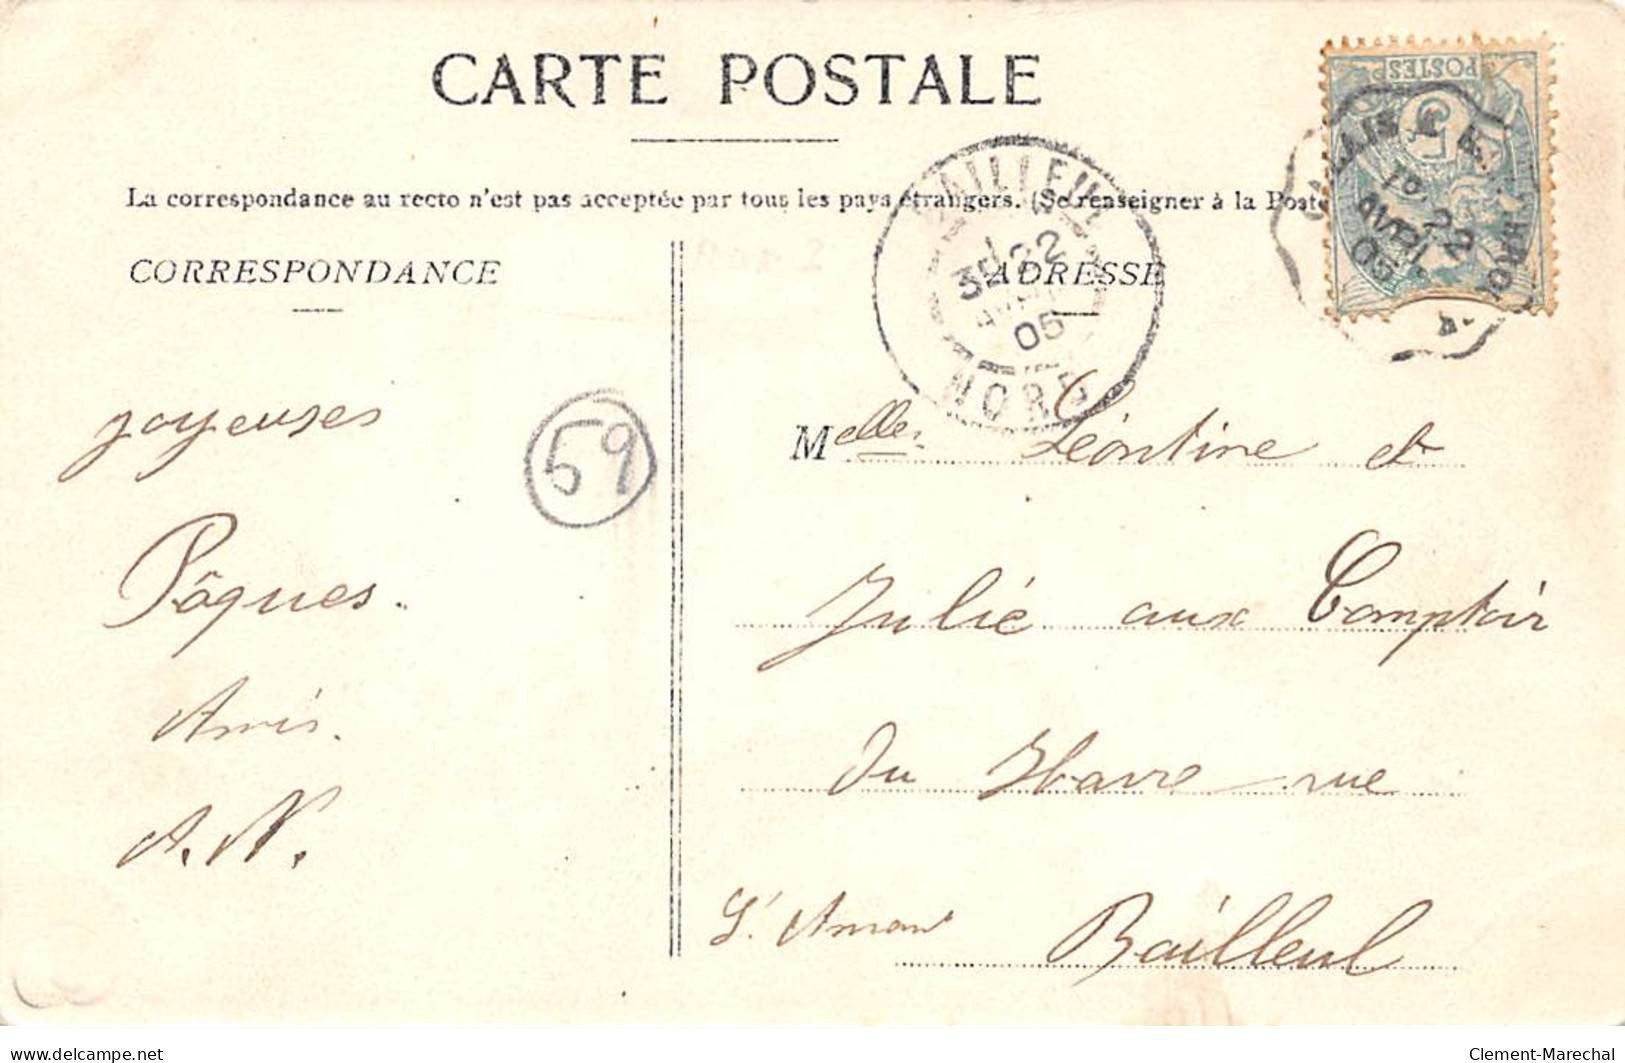 CARTE POSTALE
La correspondance au recto n'est pas acceptée par tous les pays étrangers. (Se renseigner à la Poste
CORRESPONDANCE
ADRESSE
POSTES
BAILLEUL
3E 22
05
NORD
22
AVRIL
05
joyeuses
Pâques.
59
Amis.
A. N.
Melles Léontine et
Julie aux Comptoir
du Havre rue
St Aman
Bailleul
delcampe.net
Clement-Marechal